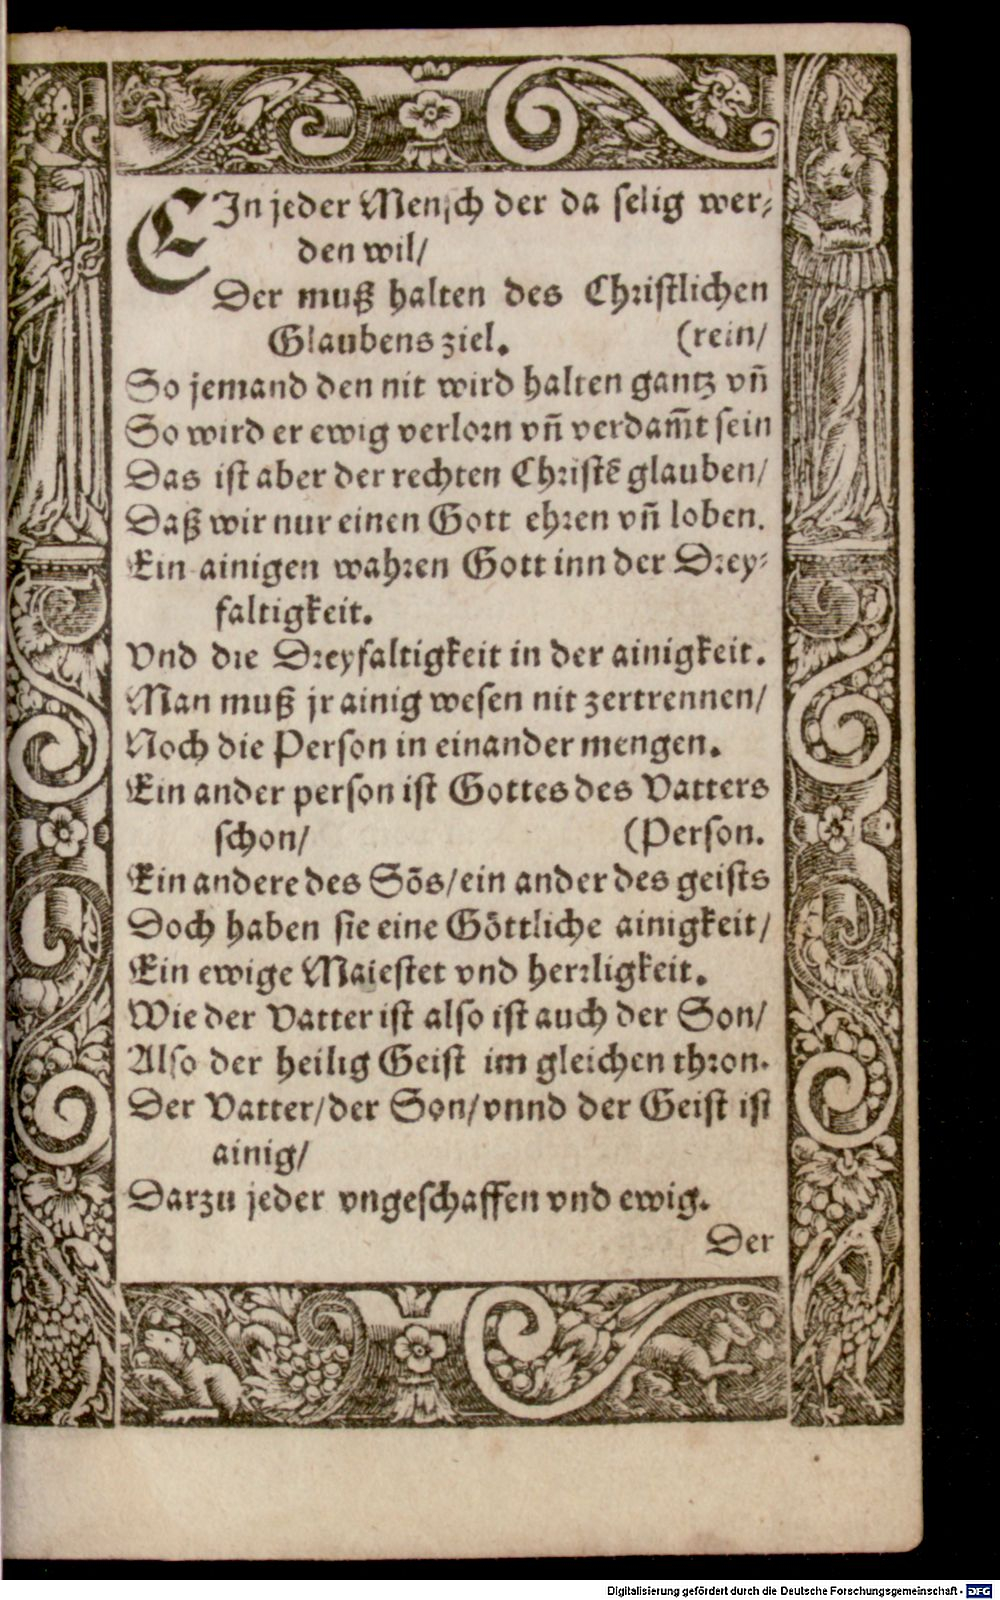 EIn jeder Mensch der da selig wer⸗
den wil/
Der muß halten des Christlichen
Glaubens ziel. (rein/
So jemand den nit wird halten gantz vn̄
So wird er ewig verlorn vn̄ verdam̄t sein
Das ist aber der rechten Christē glauben/
Daß wir nur einen Gott ehren vn̄ loben.
Ein ainigen wahren Gott inn der Drey⸗
faltigkeit.
Vnd die Dreyfaltigkeit in der ainigkeit.
Man muß jr ainig wesen nit zertrennen/
Noch die Person in einander mengen.
Ein ander person ist Gottes des Vatters
schon/ (Person.
Ein andere des Sōs/ein ander des geists
Doch haben sie eine Göttliche ainigkeit/
Ein ewige Maiestet vnd herrligkeit.
Wie der Vatter ist also ist auch der Son/
Also der heilig Geist im gleichen thron.
Der Vatter/der Son/vnnd der Geist ist
ainig/
Darzu jeder vngeschaffen vnd ewig.
Der
Digitalisierung gefördert durch die Deutsche Forschungsgemeinschaft - DFG